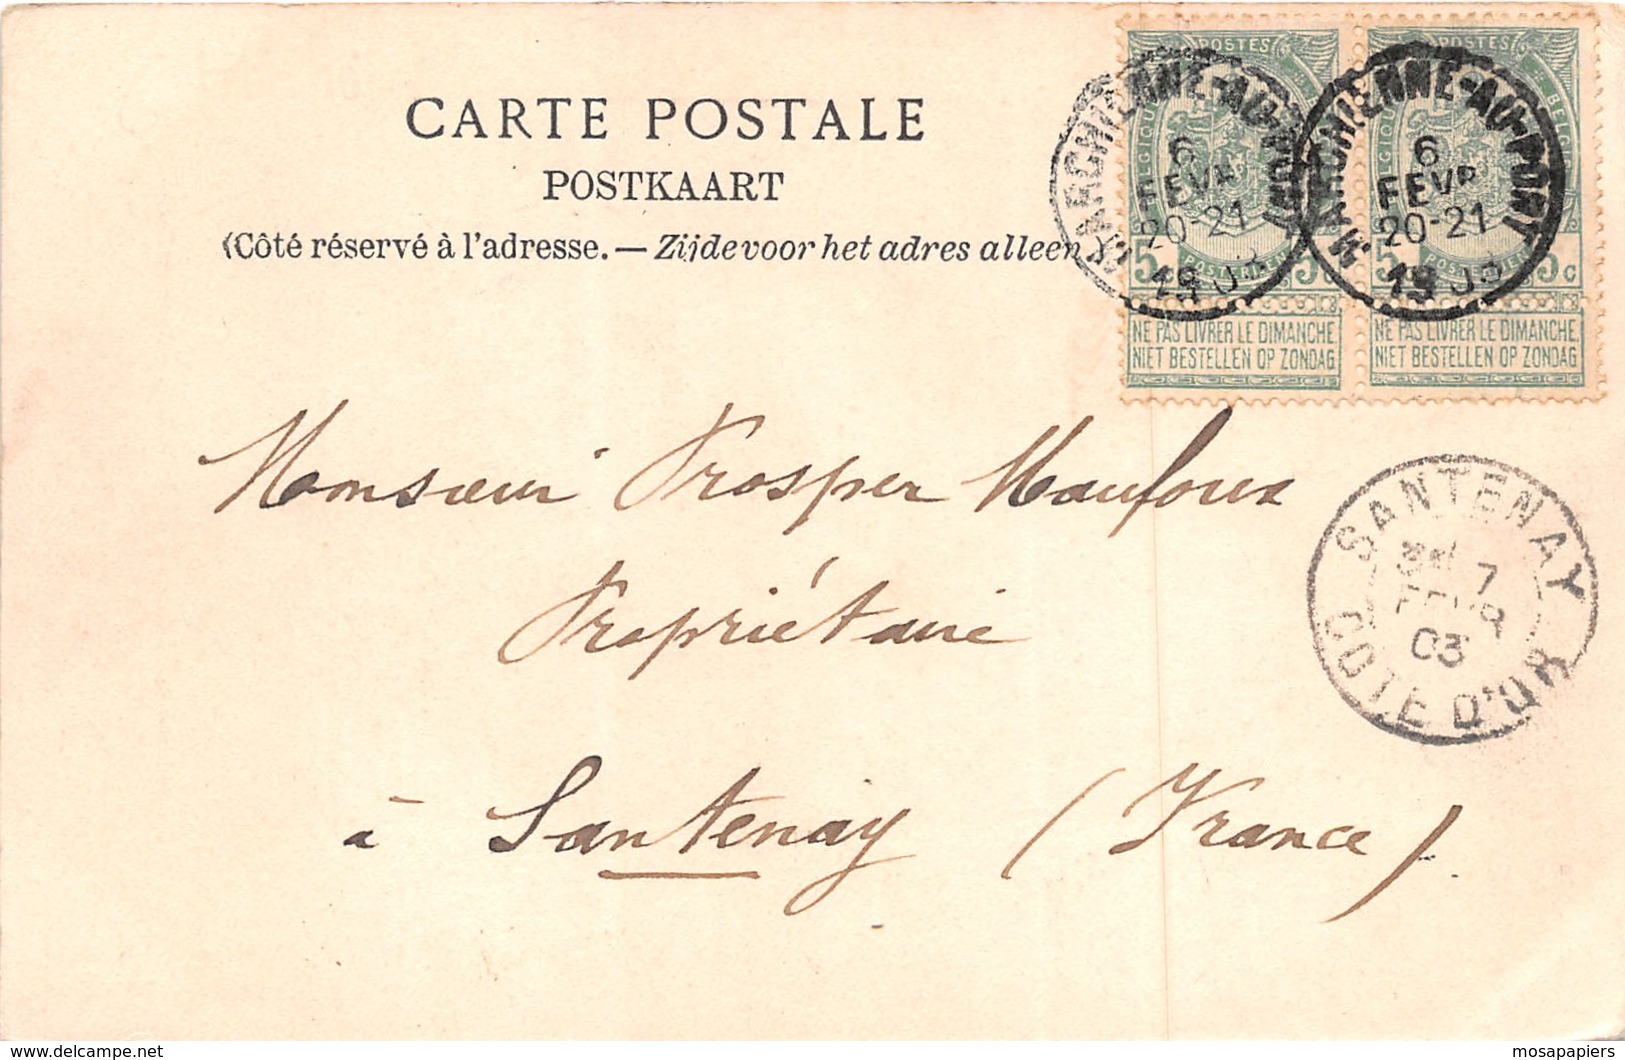 CARTE POSTALE
POSTKAART
(Côté réservé à l'adresse. — Zijde voor het adres alleen
POSTES POSTES
MARCHIENNE-AU-PORT MARCHIENNE-AU-PORT
6 6
FEVR FEVR
20-21 20-21
19 03 19 03
5 5c 5 5c
NE PAS LIVRER LE DIMANCHE NE PAS LIVRER LE DIMANCHE.
NIET BESTELLEN OP ZONDAG NIET BESTELLEN OP ZONDAG
Monsieur Prosper Maufoux
Propriétaire
à Santenay (France)
SANTENAY
7
FEVR
03
COTE D'OR
delcampe.net
mosapapiers